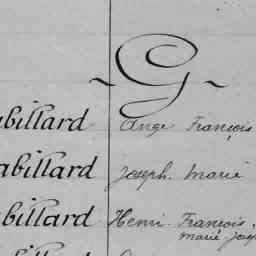 ~ G ~
abillard Ange François
abillard Joseph. Marie
abillard Henri François.
Marie Josep